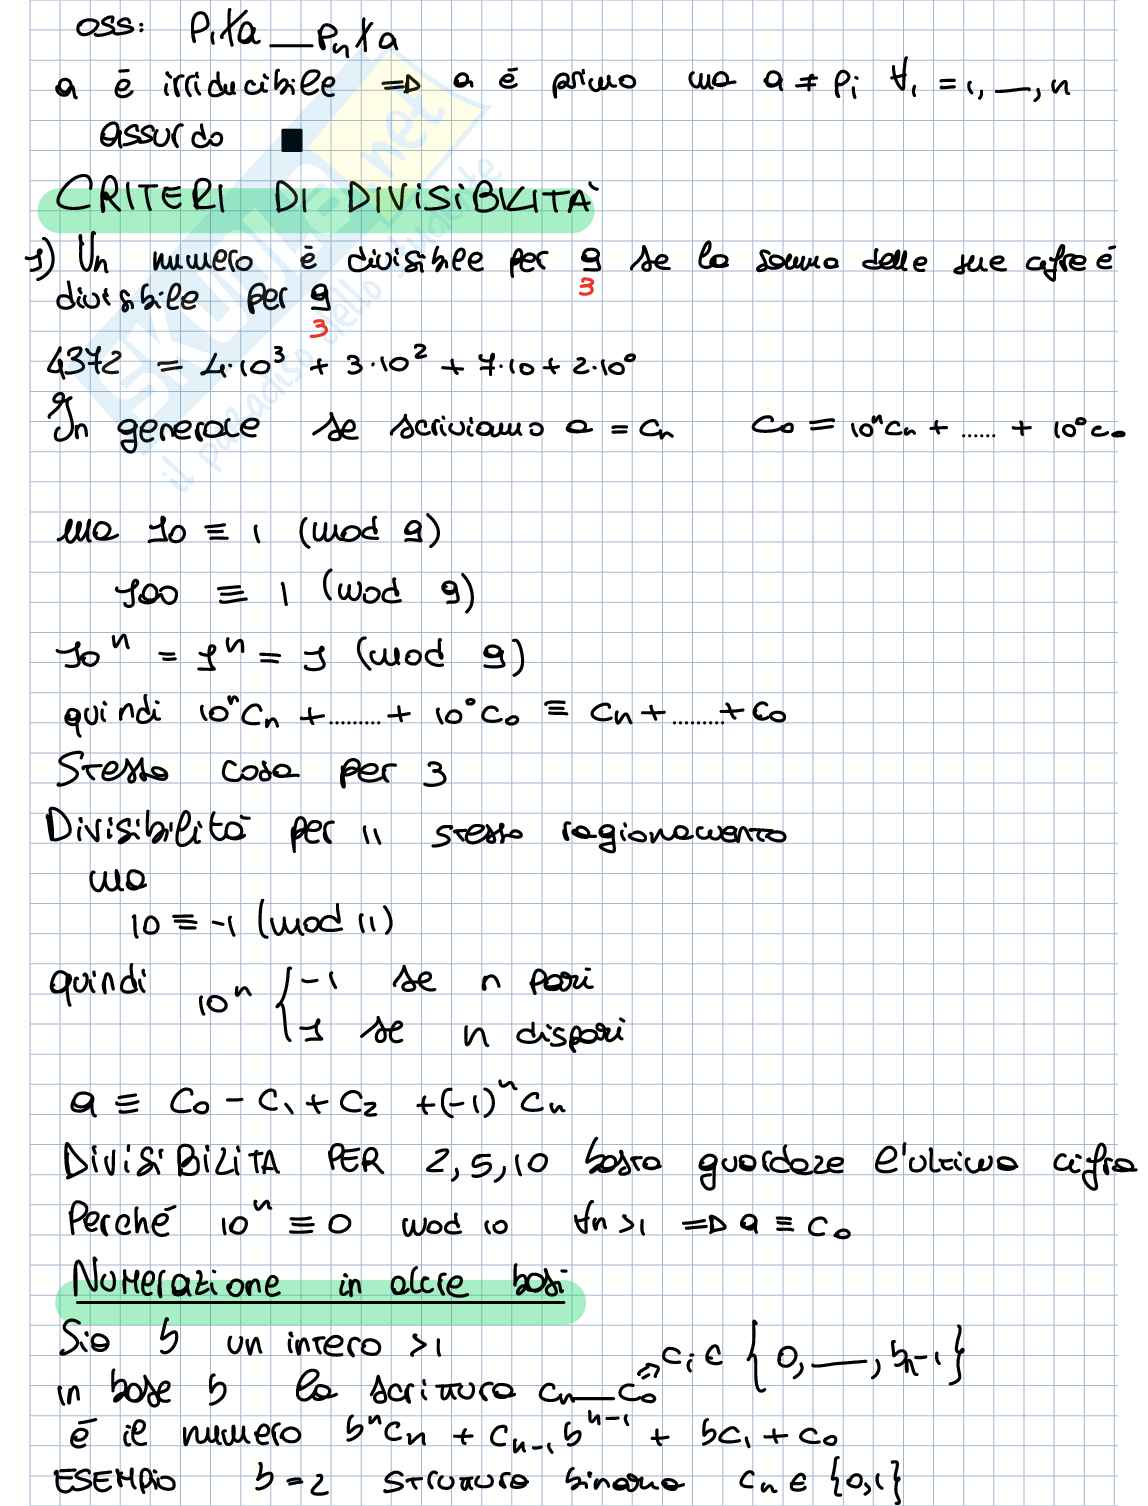 oss: p₁∤a __ pₙ∤a
a è irriducibile ⇒ a è primo ma a ≠ pᵢ ∀ᵢ = 1, __, n
assurdo ■
CRITERI DI DIVISIBILITÀ
1) Un numero è divisibile per 9 se la somma delle sue cifre è
3
divisibile per 9
3
4372 = 4·10³ + 3·10² + 7·10 + 2·10⁰
In generale se scriviamo a = cₙ c₀ = 10ⁿcₙ + ...... + 10⁰c₀
ma 10 ≡ 1 (mod 9)
100 ≡ 1 (mod 9)
10ⁿ = 1ⁿ = 1 (mod 9)
quindi 10ⁿcₙ + ......... + 10⁰c₀ ≡ cₙ + ......... + c₀
Stessa cosa per 3
Divisibilità per 11 stesso ragionamento
ma
10 ≡ -1 (mod 11)
quindi 10ⁿ { -1 se n pari
1 se n dispari
a ≡ c₀ - c₁ + c₂ +(-1)ⁿcₙ
DIVISIBILITA PER 2,5,10 basta guardare l'ultima cifra
Perché 10ⁿ ≡ 0 mod 10 ∀n>1 ⇒ a ≡ c₀
Numerazione in altre basi
Sia b un intero >1
in base b la scrittura cₙ__c₀ ⇒ cᵢ ∈ {0, __, bₙ-1}
è il numero bⁿcₙ + cₙ₋₁bⁿ⁻¹ + bc₁ + c₀
ESEMPIO b=2 struttura binaria cₙ ∈ {0,1}
SKUOLA.net
il paradiso dello studente